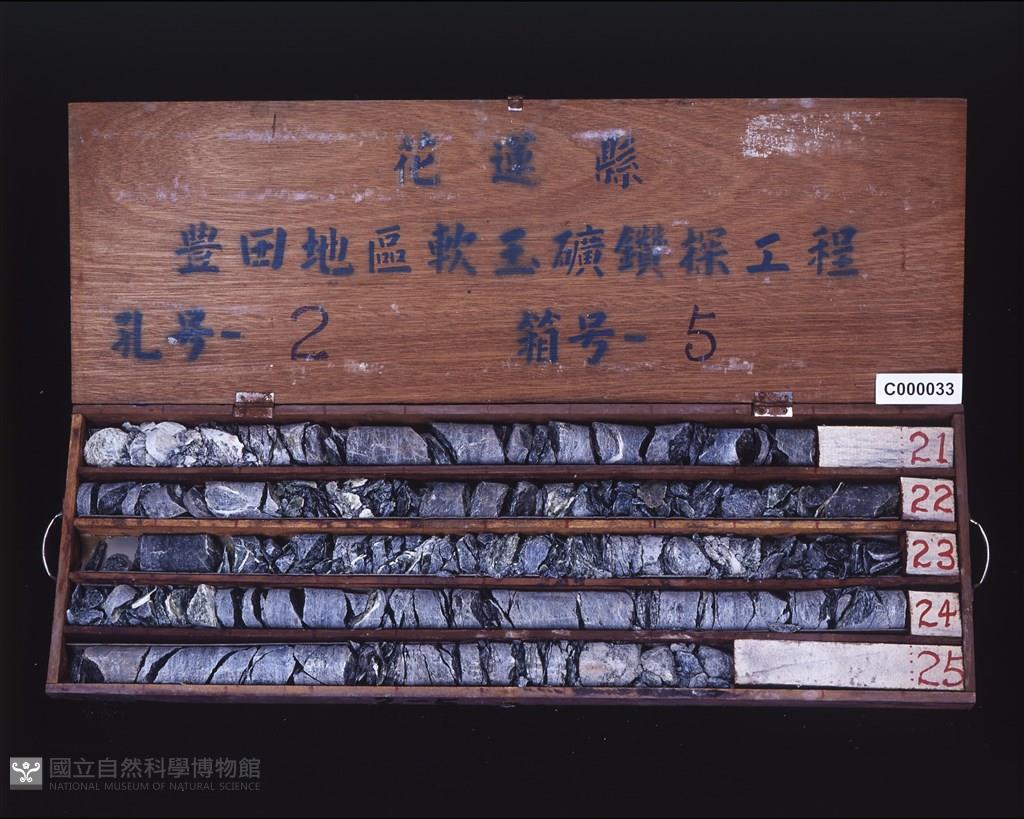 花蓮縣
豐田地區軟玉礦鑽探工程
孔号-2 箱号-5
C000033
21
22
23
24
25
國立自然科學博物館
NATIONAL MUSEUM OF NATURAL SCIENCE